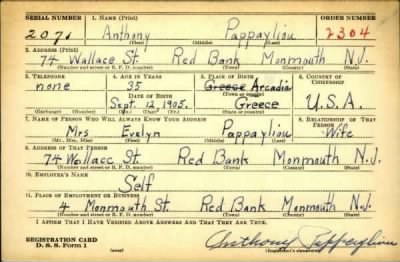 SERIAL NUMBER 1. NAME (Print) ORDER NUMBER
2071 Anthony Pappayliou 2304
(First) (Middle) (Last)
2. ADDRESS (Print)
74 Wallace St. Red Bank Monmouth N.J.
(Number and street or R. F. D. number) (Town) (County) (State)
3. TELEPHONE 4. AGE IN YEARS 5. PLACE OF BIRTH 6. COUNTRY OF CITIZENSHIP
none 35 Greece Arcadia
DATE OF BIRTH (Town or county)
Sept. 12, 1905. Greece U.S.A.
(Exchange) (Number) (Mo.) (Day) (Yr.) (State or country)
7. NAME OF PERSON WHO WILL ALWAYS KNOW YOUR ADDRESS 8. RELATIONSHIP OF THAT PERSON
Mrs Evelyn Pappayliou Wife
(Mr., Mrs., Miss) (First) (Middle) (Last)
9. ADDRESS OF THAT PERSON
74 Wallace St. Red Bank Monmouth N.J.
(Number and street or R. F. D. number) (Town) (County) (State)
10. EMPLOYER'S NAME
Self
11. PLACE OF EMPLOYMENT OR BUSINESS
4 Monmouth St. Red Bank Monmouth N.J.
(Number and street or R. F. D. number) (Town) (County) (State)
I AFFIRM THAT I HAVE VERIFIED ABOVE ANSWERS AND THAT THEY ARE TRUE.
REGISTRATION CARD
D. S. S. Form 1 (over) Anthony Pappayliou
(Registrant's signature)